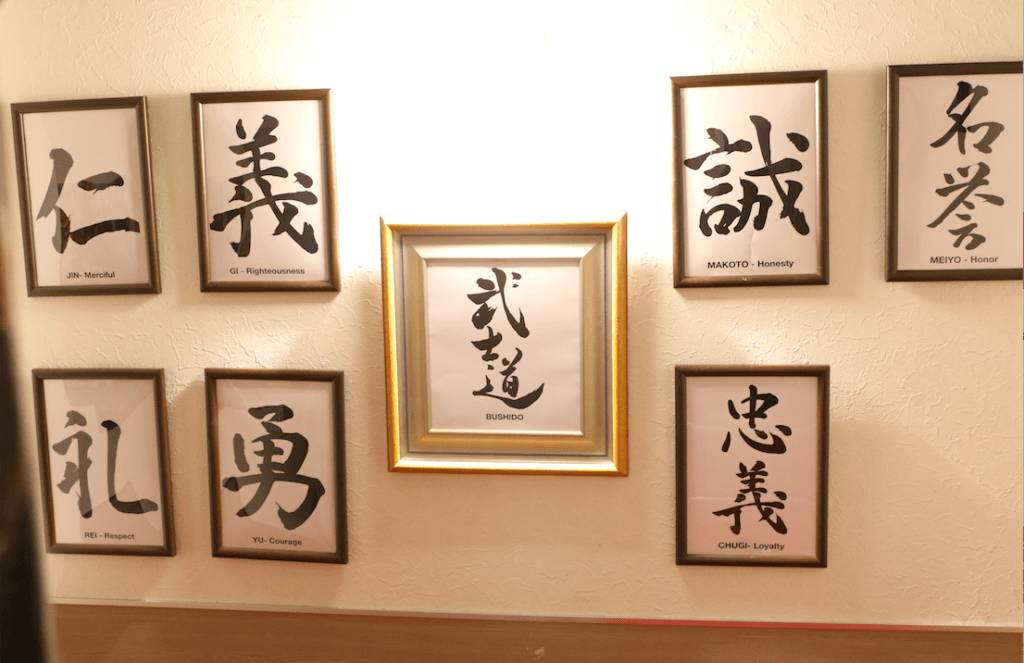 仁
JIN- Merciful
義
GI - Righteousness
誠
MAKOTO - Honesty
名
誉
MEIYO - Honor
武
士
道
BUSHIDO
礼
REI - Respect
勇
YU- Courage
忠
義
CHUGI- Loyalty